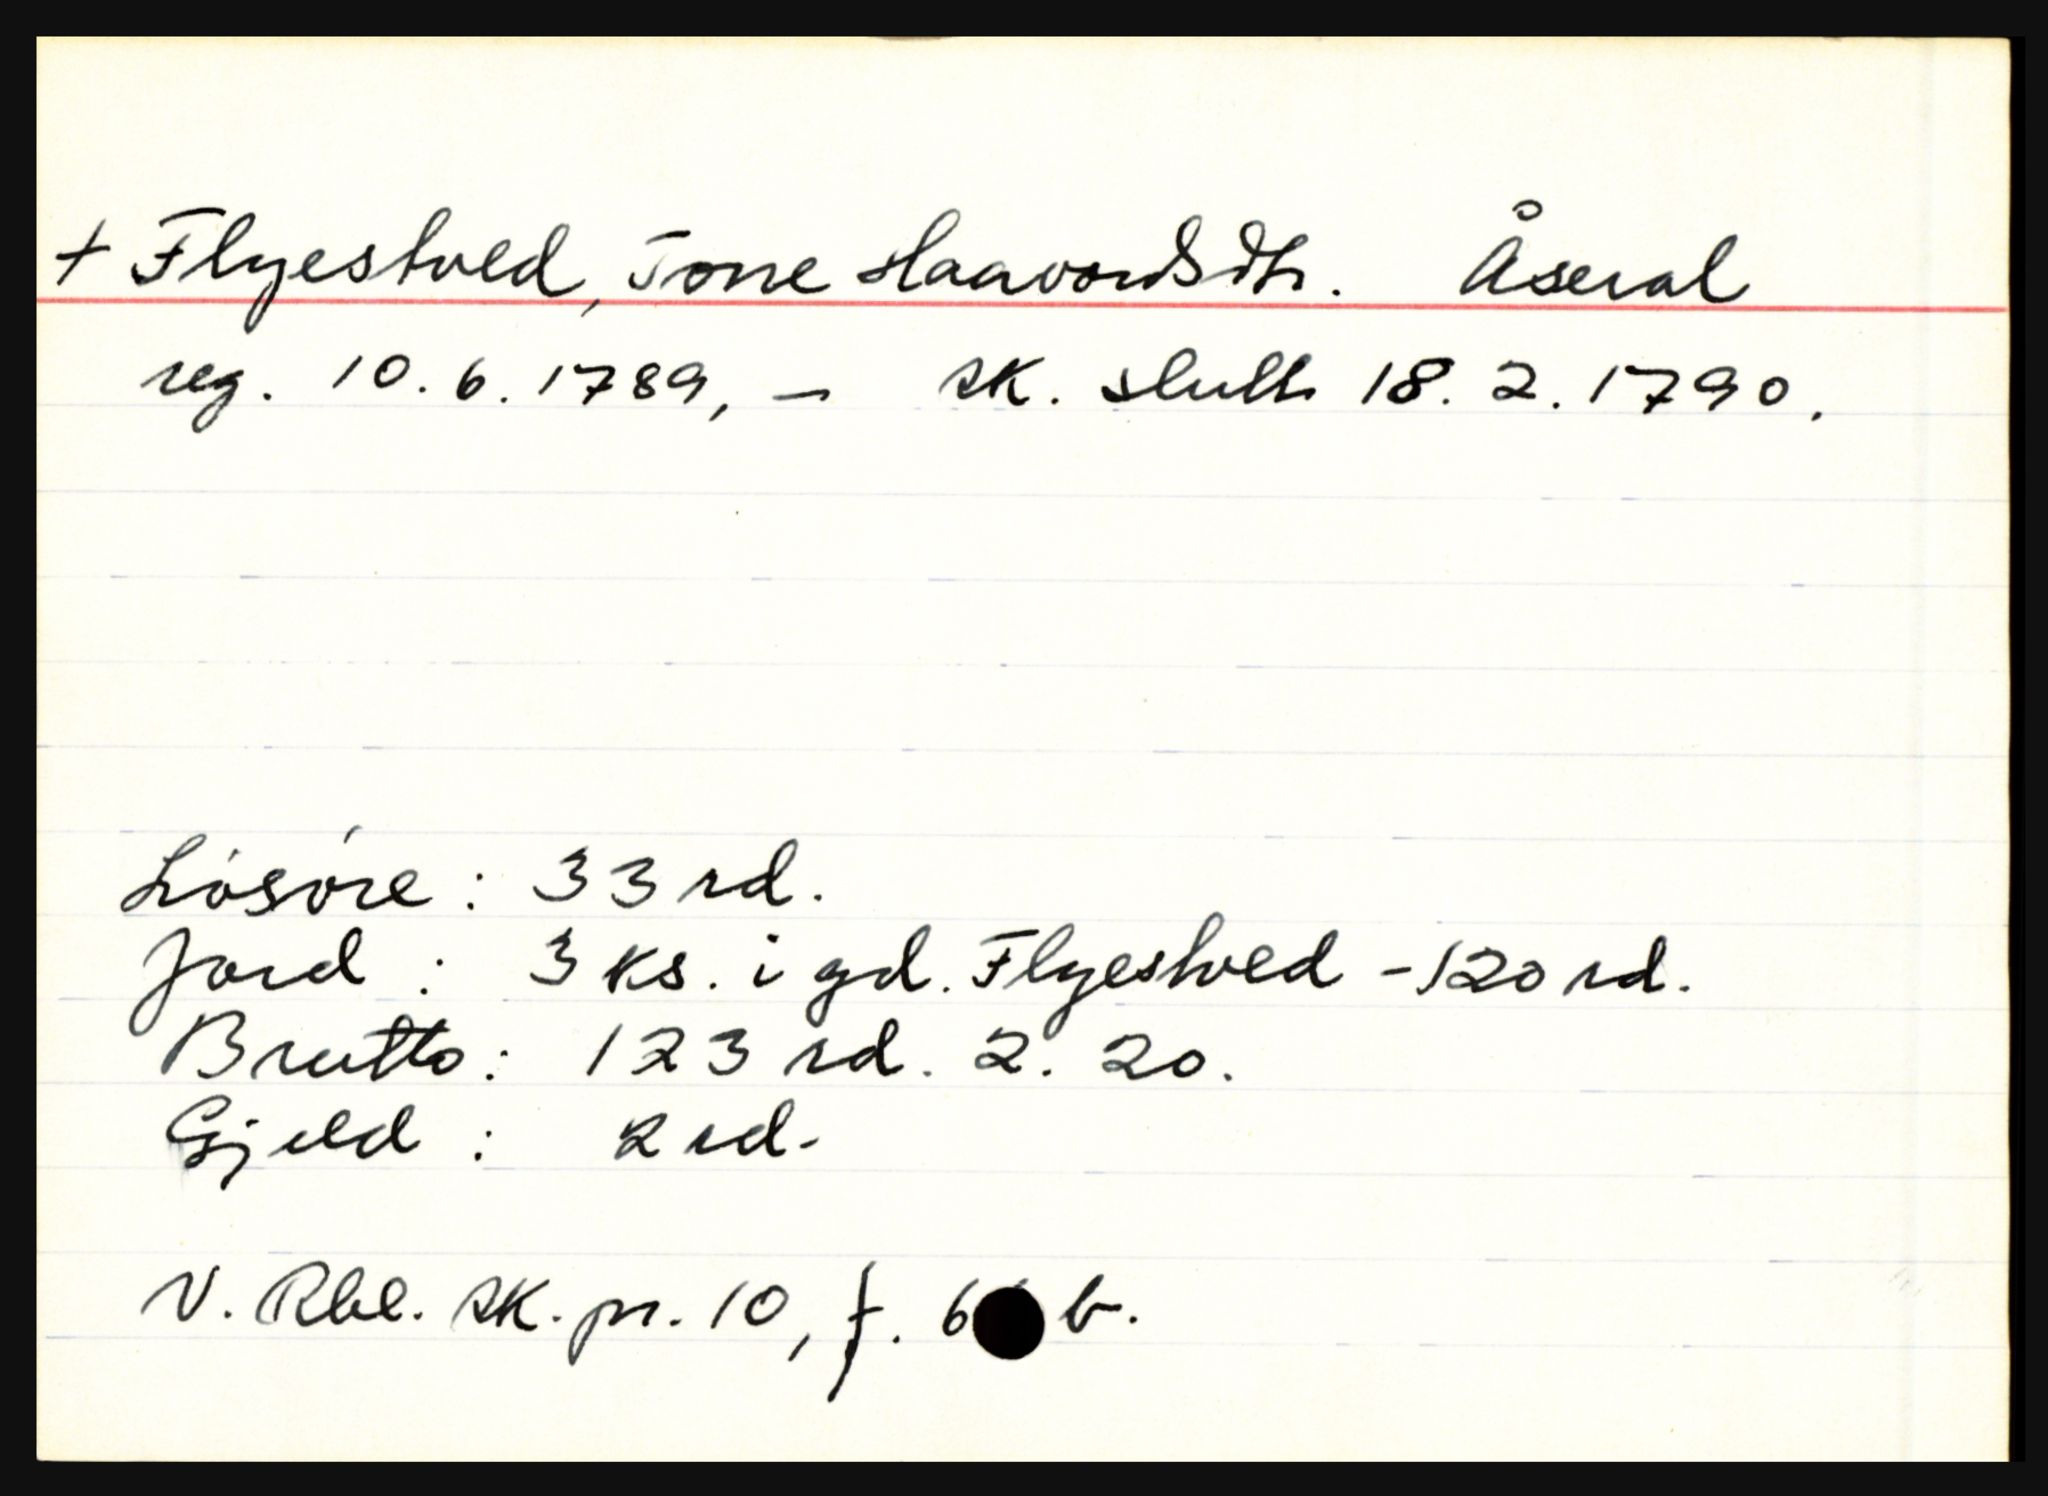 + Flyestved, Tone Haavordsdtr. Åseral
reg. 10.6.1789, - sk. slutt 18.2.1790.
Lósóre: 33 rd.
Jord : 3 ks. i gd. Flyestved - 120 rd.
Brutto: 123 rd. 2. 20.
Gjeld : 2 rd.
V. Rbl. sk. pr. 10, f. 6 b.